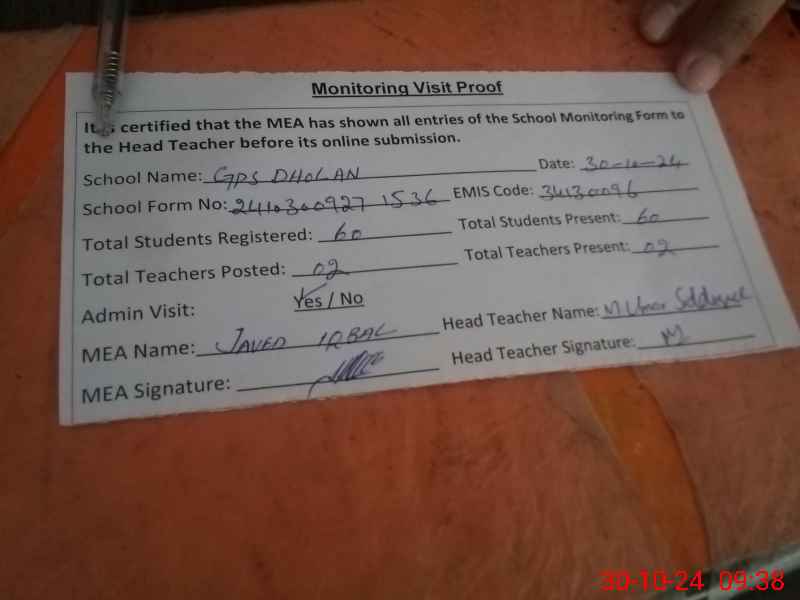 Monitoring Visit Proof
It is certified that the MEA has shown all entries of the School Monitoring Form to
the Head Teacher before its online submission.
School Name: GPS DHOLAN Date: 30-10-24
School Form No: 2410300927 1536 EMIS Code: 34130096
Total Students Registered: 60 Total Students Present: 60
Total Teachers Posted: 02 Total Teachers Present: 02
Admin Visit: Yes / No
MEA Name: JAVED IQBAL Head Teacher Name: M Umar Siddique
MEA Signature: Head Teacher Signature:
30-10-24 09:38